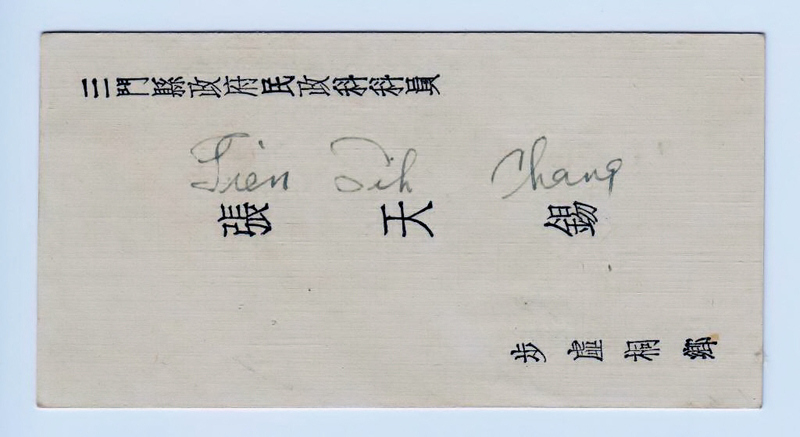 三門縣政府民政科科員
Tien Sih Chang
張天錫
步虛桐鄉